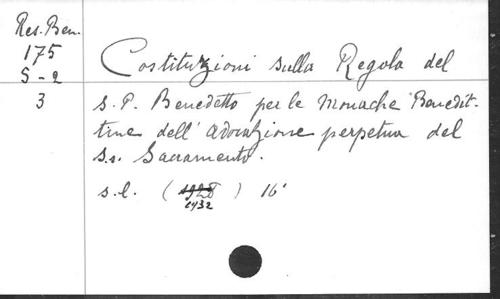 Res. Ben.
175
S-2
3
Costituzioni sulla Regola del
S. P. Benedetto per le Monache Benedit-
tine dell' adorazione perpetua del
S.s. Sacramento.
s.l. ( ) 16°
1932